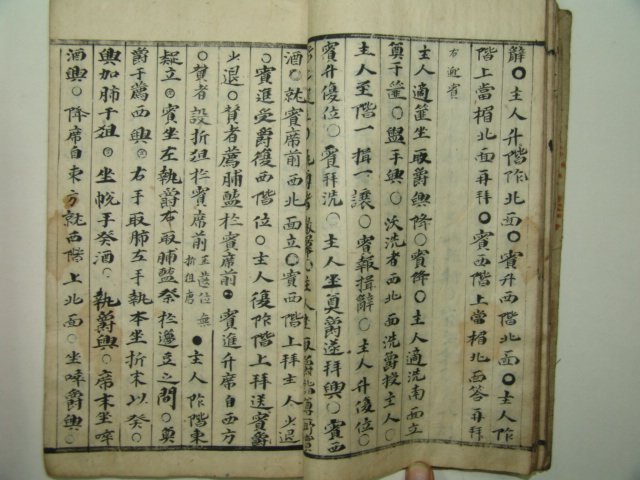 辭○主人升階阼北面○賓升西階北面●主人阼
階上當楣北面再拜○賓西階上當楣北面答再拜
右迎賓
主人適篚坐取爵興降○賓降○主人適洗南面立
奠于篚○盥手興○沃洗者西北面洗爵授主人○
主人至階一揖一讓○賓報揖辭○主人升復位○
賓升復位○賓拜洗○主人坐奠爵遂拜興○賓西
酒○就賓席前西北面立○賓西階上拜主人少退
○賓進受爵復西階位○主人復阼階上拜送賓爵
少退○贊者薦脯藍於賓席前●賓進升席自西方
○贊者設折俎於賓席前 ●主人阼階東
疑立○賓坐左執爵右取脯藍祭於籩豆之間○奠
爵于薦西興○右手取肺左手執本坐折末以癸○
興加肺于俎○坐帨手癸酒○執爵興○席末坐啐
酒興○降席自東方就西階上北面○坐啐爵興○